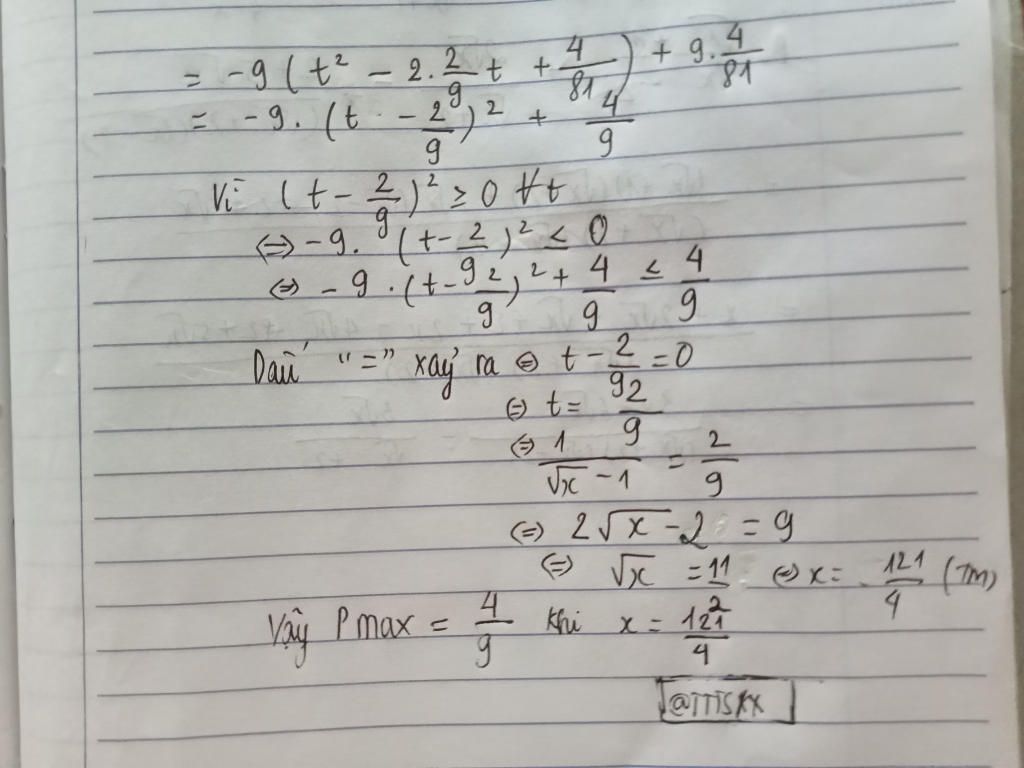 = -9 ( t² - 2. 2/9 t + 4/81 ) + 9. 4/81
= -9. ( t - 2/9 )² + 4/9
Vì ( t - 2/9 )² ≥ 0 ∀t
⇔ -9. ( t - 2/9 )² ≤ 0
⇔ -9 . ( t - 2/9 )² + 4/9 ≤ 4/9
Dấu "=" xảy ra ⇔ t - 2/9 = 0
⇔ t = 2/9
⇔ 1/(√x - 1) = 2/9
⇔ 2√x - 2 = 9
⇔ √x = 11/2 ⇔ x = 121/4 (TM)
Vậy P max = 4/9 khi x = 121/4